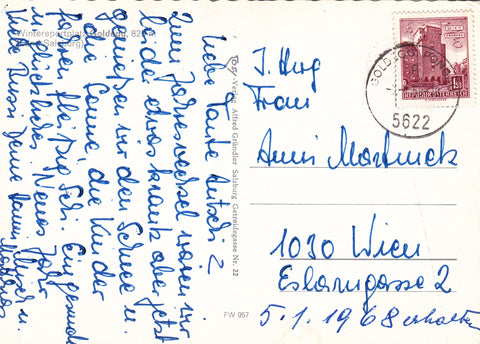 Wintersportplatz Goldegg, 825 m
Salzburg)
Liebe Tante Antschi!
Zum Jahreswechsel waren wir
leider etwas krank aber jetzt
genießen wir den Schnee u.
die Sonne u. die Kinder
fahren fleißig Schi. Ein gesundes
glückliches Neues Jahr
viele Bussi Deine
Post Verlag Alfred Gründler Salzburg Getreidegasse Nr. 22
FW 957
GOLDEGG
5622
REPUBLIK ÖSTERREICH
Frau
Anni
1030 Wien
Eslarngasse 2
5. 1. 1968 erhalten